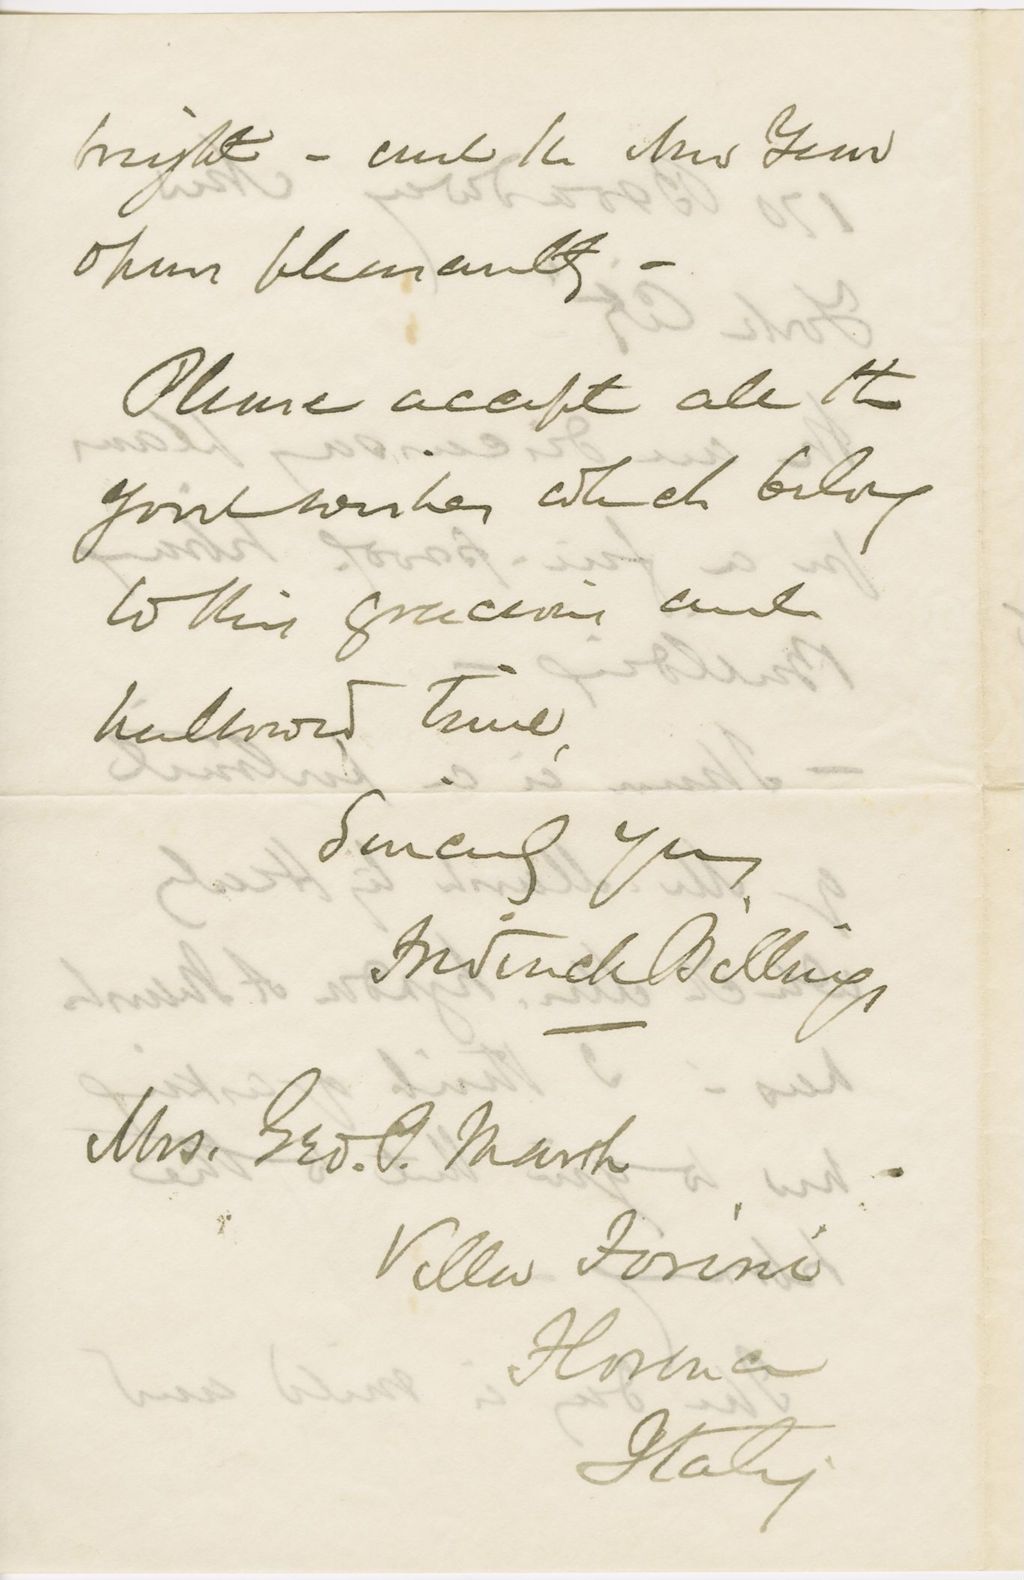 bright - and the New Year
opens pleasantly -
Please accept all the
good wishes which belong
to this gracious and
hallowed time,
Sincerely Yours,
Frederick Billings
Mrs. Geo. P. Marsh
Villa Forini
Florence
Italy